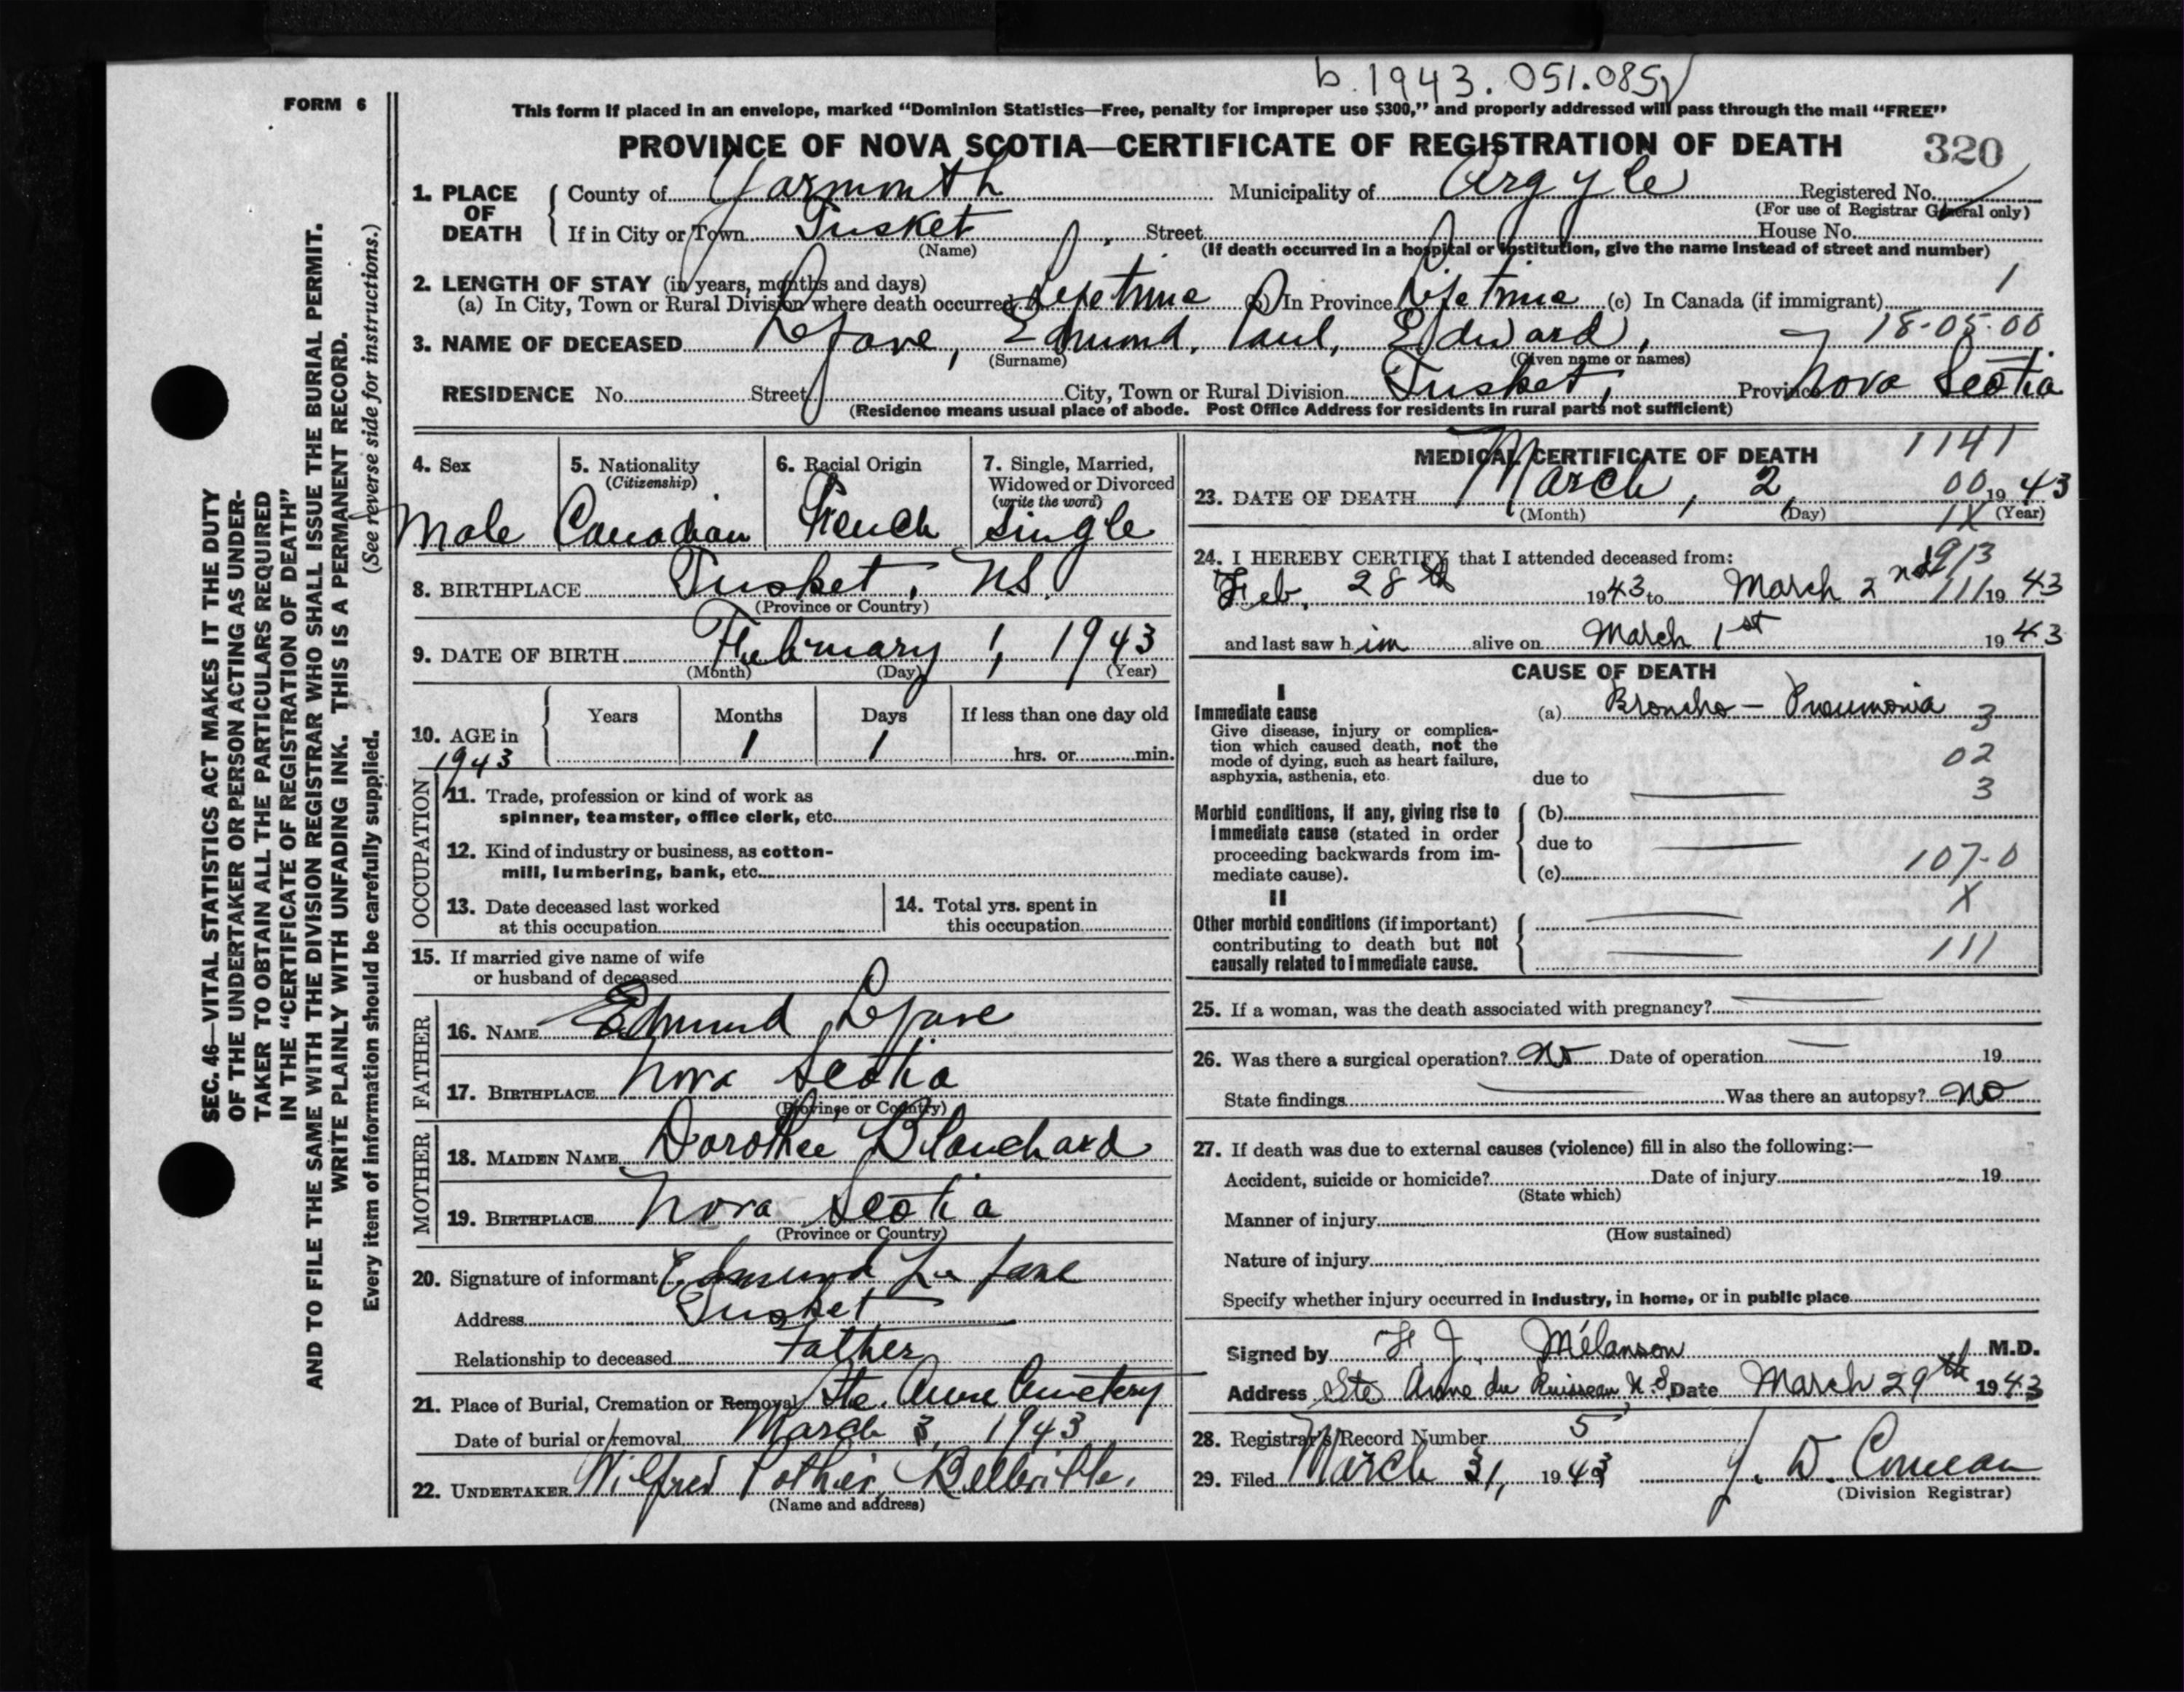 b. 1943. 051.085
This form if placed in an envelope, marked "Dominion Statistics—Free, penalty for improper use $300," and properly addressed will pass through the mail "FREE"
FORM 6
PROVINCE OF NOVA SCOTIA—CERTIFICATE OF REGISTRATION OF DEATH 320
1. PLACE OF DEATH
County of Yarmouth Municipality of Argyle Registered No.
(For use of Registrar General only)
If in City or Town Tusket, Street House No.
(Name) (If death occurred in a hospital or institution, give the name instead of street and number)
2. LENGTH OF STAY (in years, months and days) 1
(a) In City, Town or Rural Division where death occurred Lifetime (b) In Province Lifetime (c) In Canada (if immigrant)
3. NAME OF DECEASED LeFave, Edmund, Paul, Edward, 18-05-00
(Surname) (Given name or names)
RESIDENCE No. Street City, Town or Rural Division Tusket, Province Nova Scotia
(Residence means usual place of abode. Post Office Address for residents in rural parts not sufficient)
SEC. 46—VITAL STATISTICS ACT MAKES IT THE DUTY
OF THE UNDERTAKER OR PERSON ACTING AS UNDER-
TAKER TO OBTAIN ALL THE PARTICULARS REQUIRED
IN THE "CERTIFICATE OF REGISTRATION OF DEATH"
AND TO FILE THE SAME WITH THE DIVISION REGISTRAR WHO SHALL ISSUE THE BURIAL PERMIT.
WRITE PLAINLY WITH UNFADING INK. THIS IS A PERMANENT RECORD.
Every item of information should be carefully supplied. (See reverse side for instructions.)
4. Sex
Male
5. Nationality
(Citizenship)
Canadian
6. Racial Origin
French
7. Single, Married,
Widowed or Divorced
(write the word)
Single
8. BIRTHPLACE Tusket, N.S.
(Province or Country)
9. DATE OF BIRTH February 1, 1943
(Month) (Day) (Year)
10. AGE in
1943
Years Months Days If less than one day old
1 1 hrs. or min.
OCCUPATION
11. Trade, profession or kind of work as
spinner, teamster, office clerk, etc.
12. Kind of industry or business, as cotton-
mill, lumbering, bank, etc.
13. Date deceased last worked
at this occupation
14. Total yrs. spent in
this occupation
15. If married give name of wife
or husband of deceased
FATHER
16. NAME Edmund LeFave
17. BIRTHPLACE Nova Scotia
(Province or Country)
MOTHER
18. MAIDEN NAME Dorothée Blanchard
19. BIRTHPLACE Nova Scotia
(Province or Country)
20. Signature of informant Edmund Le fave
Address Tusket
Relationship to deceased Father
21. Place of Burial, Cremation or Removal Ste. Anne Cemetery
Date of burial or removal March 3, 1943
22. UNDERTAKER Wilfred Pothier, Belleville.
(Name and address)
MEDICAL CERTIFICATE OF DEATH 1141
23. DATE OF DEATH March, 2, 00 1943
(Month) (Day) 1X (Year)
24. I HEREBY CERTIFY that I attended deceased from: 913
Feb. 28th 1943 to March 2nd 111 1943
and last saw him alive on March 1st 1943
CAUSE OF DEATH
I
Immediate cause
Give disease, injury or complica-
tion which caused death, not the
mode of dying, such as heart failure,
asphyxia, asthenia, etc.
(a) Broncho - Pneumonia 3
02
due to 3
Morbid conditions, if any, giving rise to
immediate cause (stated in order
proceeding backwards from im-
mediate cause).
(b)
due to
(c) 107-0
II X
Other morbid conditions (if important)
contributing to death but not
causally related to immediate cause.
111
25. If a woman, was the death associated with pregnancy?
26. Was there a surgical operation? No Date of operation 19
State findings Was there an autopsy? No
27. If death was due to external causes (violence) fill in also the following:—
Accident, suicide or homicide? Date of injury 19
(State which)
Manner of injury
(How sustained)
Nature of injury
Specify whether injury occurred in industry, in home, or in public place
Signed by J. Mélanson M.D.
Address Ste Anne du Ruisseau N.S. Date March 29th 1943
28. Registrar's Record Number 5
29. Filed March 31, 1943 J. D. Comeau
(Division Registrar)